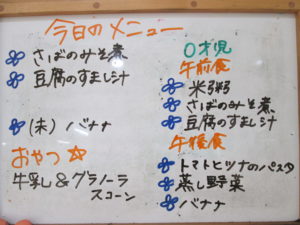 今日のメニュー
さばのみそ煮
豆腐のすまし汁
(未) バナナ
おやつ
牛乳&グラノーラ
スコーン
0才児
午前食
米粥
さばのみそ煮
豆腐のすまし汁
午後食
トマトとツナのパスタ
蒸し野菜
バナナ